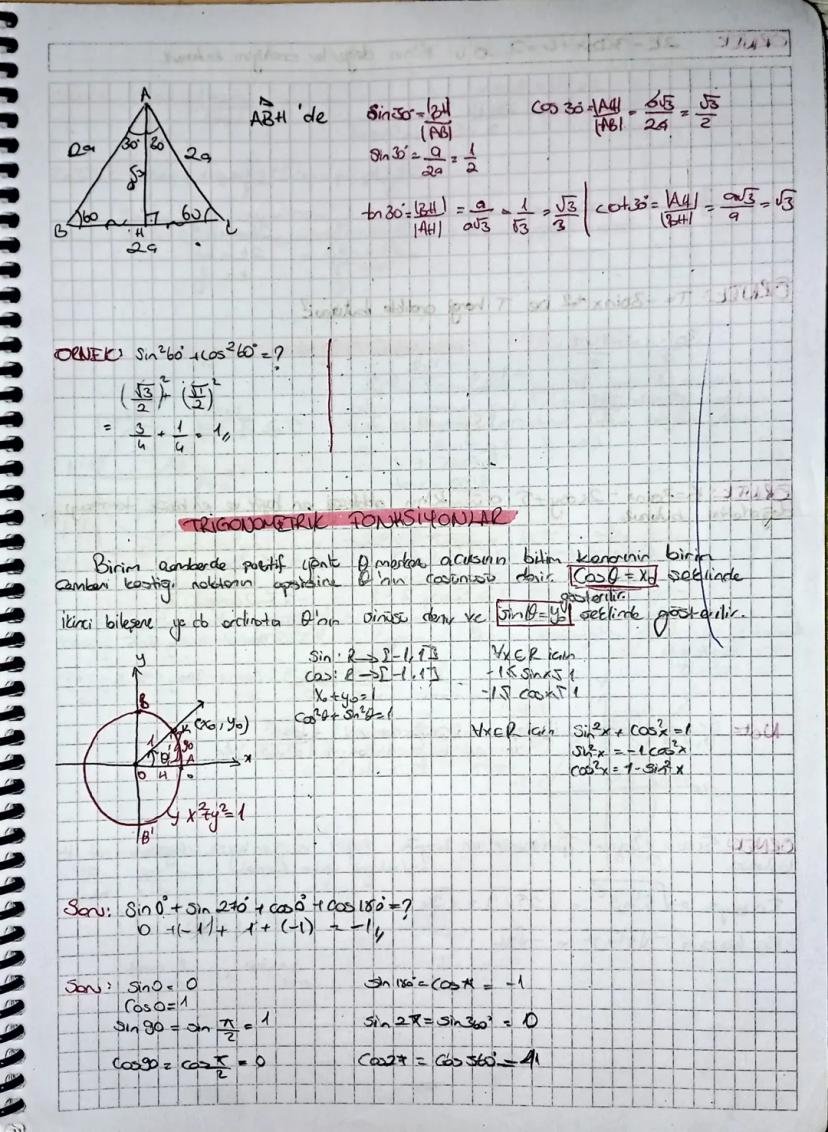 A
30° 30
2a
2a
a√3
B
60
60
H
C
2a
ABH 'de
Sin30° = |BH| / |AB|
Sin30° = a/2a = 1/2
Cos 30° = |AH| / |AB| = a√3/2a = √3/2
tan30° = |BH| / |AH| = a/a√3 = 1/√3 = √3/3
cot30° = |AH| / |BH| = a√3/a = √3
ÖRNEK: Sin²60° + Cos²60° = ?
(√3/2)² + (√1/2)²
= 3/4 + 1/4 = 1//
TRİGONOMETRİK FONKSİYONLAR
Birim çemberde pozitif yönlü θ merkez açısının bitim kenarının birim
çemberi kestiği noktanın apsisine θ'nın cosinüsü denir. Cosθ = x₀ şeklinde
gösterilir.
ikinci bileşene ya da ordinata θ'nın sinüsü denir ve sinθ = y₀ şeklinde gösterilir.
sin: R → [-1,1]
cos: R → [-1,1]
x₀ + y₀ = 1
cos²θ + sin²θ = 1
∀x∈R için
-1 ≤ sinx ≤ 1
-1 ≤ cosx ≤ 1
∀x∈R için sin²x + cos²x = 1
sin²x = -1 cos²x
cos²x = 1 - sin²x
y
B
K (x₀, y₀)
1
y₀
θ
x
O H A
x² + y² = 1
B'
Soru: Sin0° + sin 270° + cos0° + cos180° = ?
0 + (-1) + 1 + (-1) = -1//
Soru: sin0 = 0
Cos0 = 1
sin90 = sin π/2 = 1
Cos90 = cos π/2 = 0
sin 180° = cosπ = -1
Sin 2π = sin360° = 0
Cos2π = Cos360° = 1